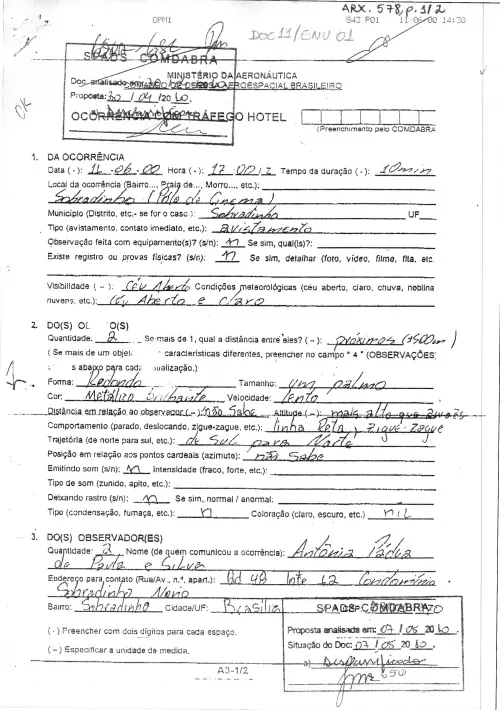 ARX. 578, p. 1/2
OPM1 843 P01 11/06/00 14:30
DOC 11/ENV 01
OK
SPADS COMDABRA
MINISTÉRIO DA AERONÁUTICA
Doc. analisado em: AEROESPACIAL BRASILEIRO
Proposta: 30 / 04 /20 10.
OCORRÊNCIA COM TRÁFEGO HOTEL
(Preenchimento pelo COMDABRA
1. DA OCORRÊNCIA
Data ( · ): 11 .06.00 Hora ( · ): 17:00 Tempo da duração ( · ): 10min
Local da ocorrência (Bairro..., Praia de..., Morro..., etc.):
Sobradinho (Pólo de Cinema)
Município (Distrito, etc.- se for o caso ): Sobradinho UF
Tipo (avistamento, contato imediato, etc.): avistamento
Observação feita com equipamento(s)? (s/n): n Se sim, qual(is)?:
Existe registro ou provas físicas? (s/n): n Se sim, detalhar (foto, vídeo, filme, fita, etc.
Visibilidade ( ~ ): Céu Aberto Condições meteorológicas (céu aberto, claro, chuva, neblina
nuvens, etc.): Céu Aberto e claro
2. DO(S) O (S)
Quantidade: 2 Se mais de 1, qual a distância entre eles? ( ~ ): próximos (1500m)
( Se mais de um objet características diferentes, preencher no campo " 4 " (OBSERVAÇÕES;
s abaixo para cada sualização.)
Forma: Redondo Tamanho: um palmo
Cor: Metálico brilhante Velocidade: lento
Distância em relação ao observador ( ~ ): não Sabe Altitude ( ~ ): mais alto que aviões
Comportamento (parado, deslocando, zigue-zague, etc.): linha Reta, Zigue-Zague
Trajetória (de norte para sul, etc.): de Sul para Norte
Posição em relação aos pontos cardeais (azimute): não Sabe
Emitindo som (s/n): n Intensidade (fraco, forte, etc.):
Tipo de som (zunido, apito, etc.):
Deixando rastro (s/n): n Se sim, normal / anormal:
Tipo (condensação, fumaça, etc.): n Coloração (claro, escuro, etc.) nil
3. DO(S) OBSERVADOR(ES)
Quantidade: 2 Nome (de quem comunicou a ocorrência): Antônia Pádua
de Paula e Silva
Endereço para contato (Rua/Av., n.º, apart.): Qd 48 lote 12 Condomínio
Sobradinho Novo
Bairro: Sobradinho Cidade/UF: Brasília
SPADS-COMDABRA
( · ) Preencher com dois dígitos para cada espaço.
Proposta analisada em: 07 / 05 20 10.
( ~ ) Especificar a unidade de medida.
Situação do Doc: 07 / 05 20 10.
a) Desclassificado
A3-1/2